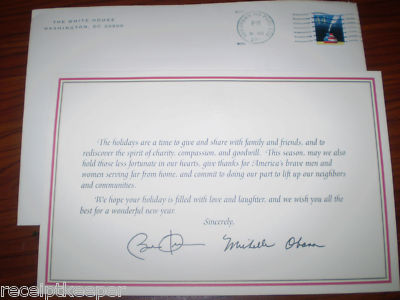 THE WHITE HOUSE
WASHINGTON, DC 20500
The holidays are a time to give and share with family and friends, and to
rediscover the spirit of charity, compassion, and goodwill. This season, may we also
hold those less fortunate in our hearts, give thanks for America's brave men and
women serving far from home, and commit to doing our part to lift up our neighbors
and communities.
We hope your holiday is filled with love and laughter, and we wish you all
the best for a wonderful new year.
Sincerely,
Michelle Obama
receiptkeeper